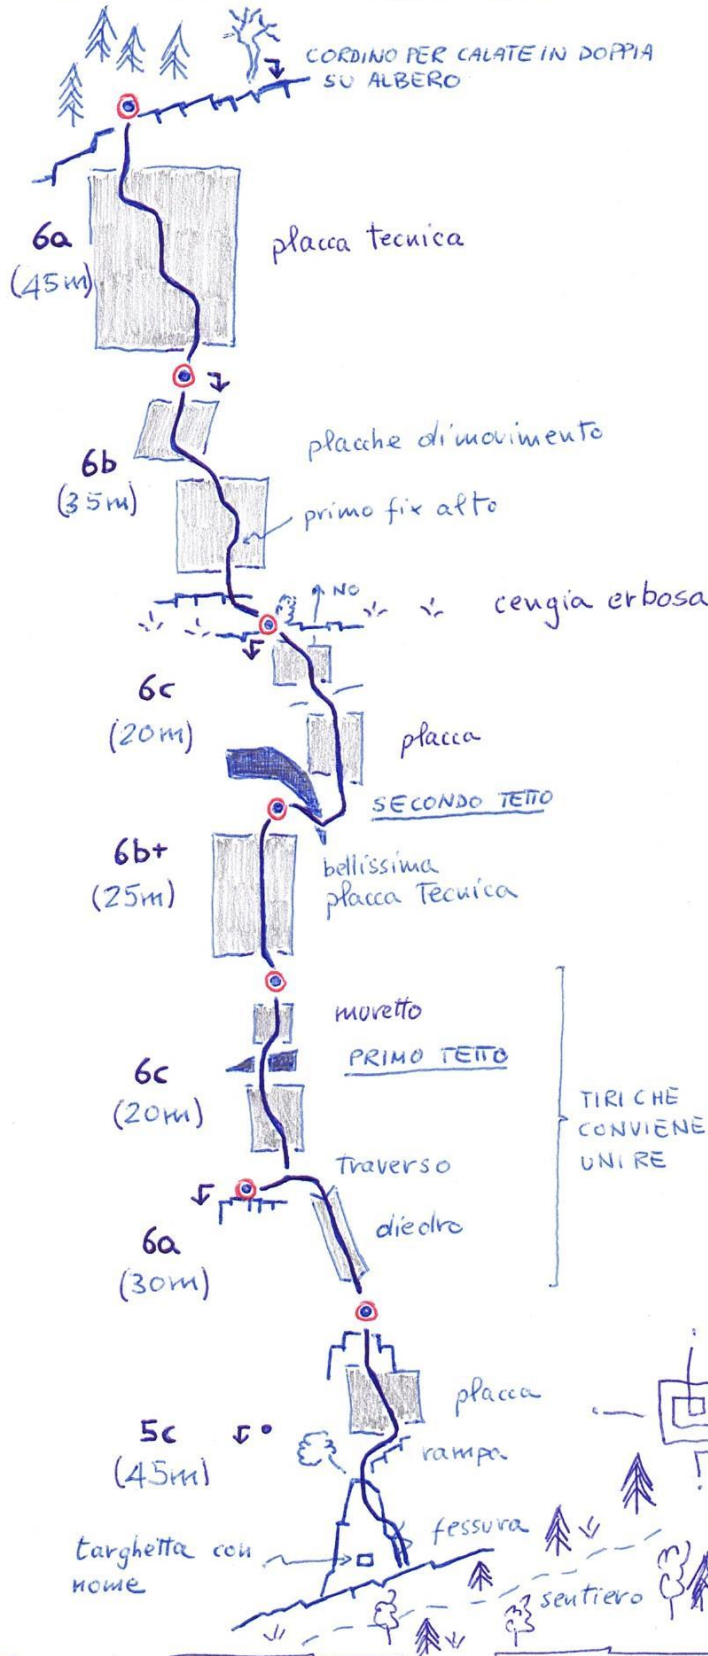 CORDINO PER CALATE IN DOPPIA
SU ALBERO
6a
(45m)
placca tecnica
6b
(35m)
placche di movimento
primo fix alto
NO
cengia erbosa
6c
(20m)
placca
SECONDO TETTO
6b+
(25m)
bellissima
placca Tecnica
muretto
PRIMO TETTO
6c
(20m)
TIRI CHE
CONVIENE
UNIRE
Traverso
diedro
6a
(30m)
placca
5c
(45m)
rampa
fessura
targhetta con
nome
sentiero